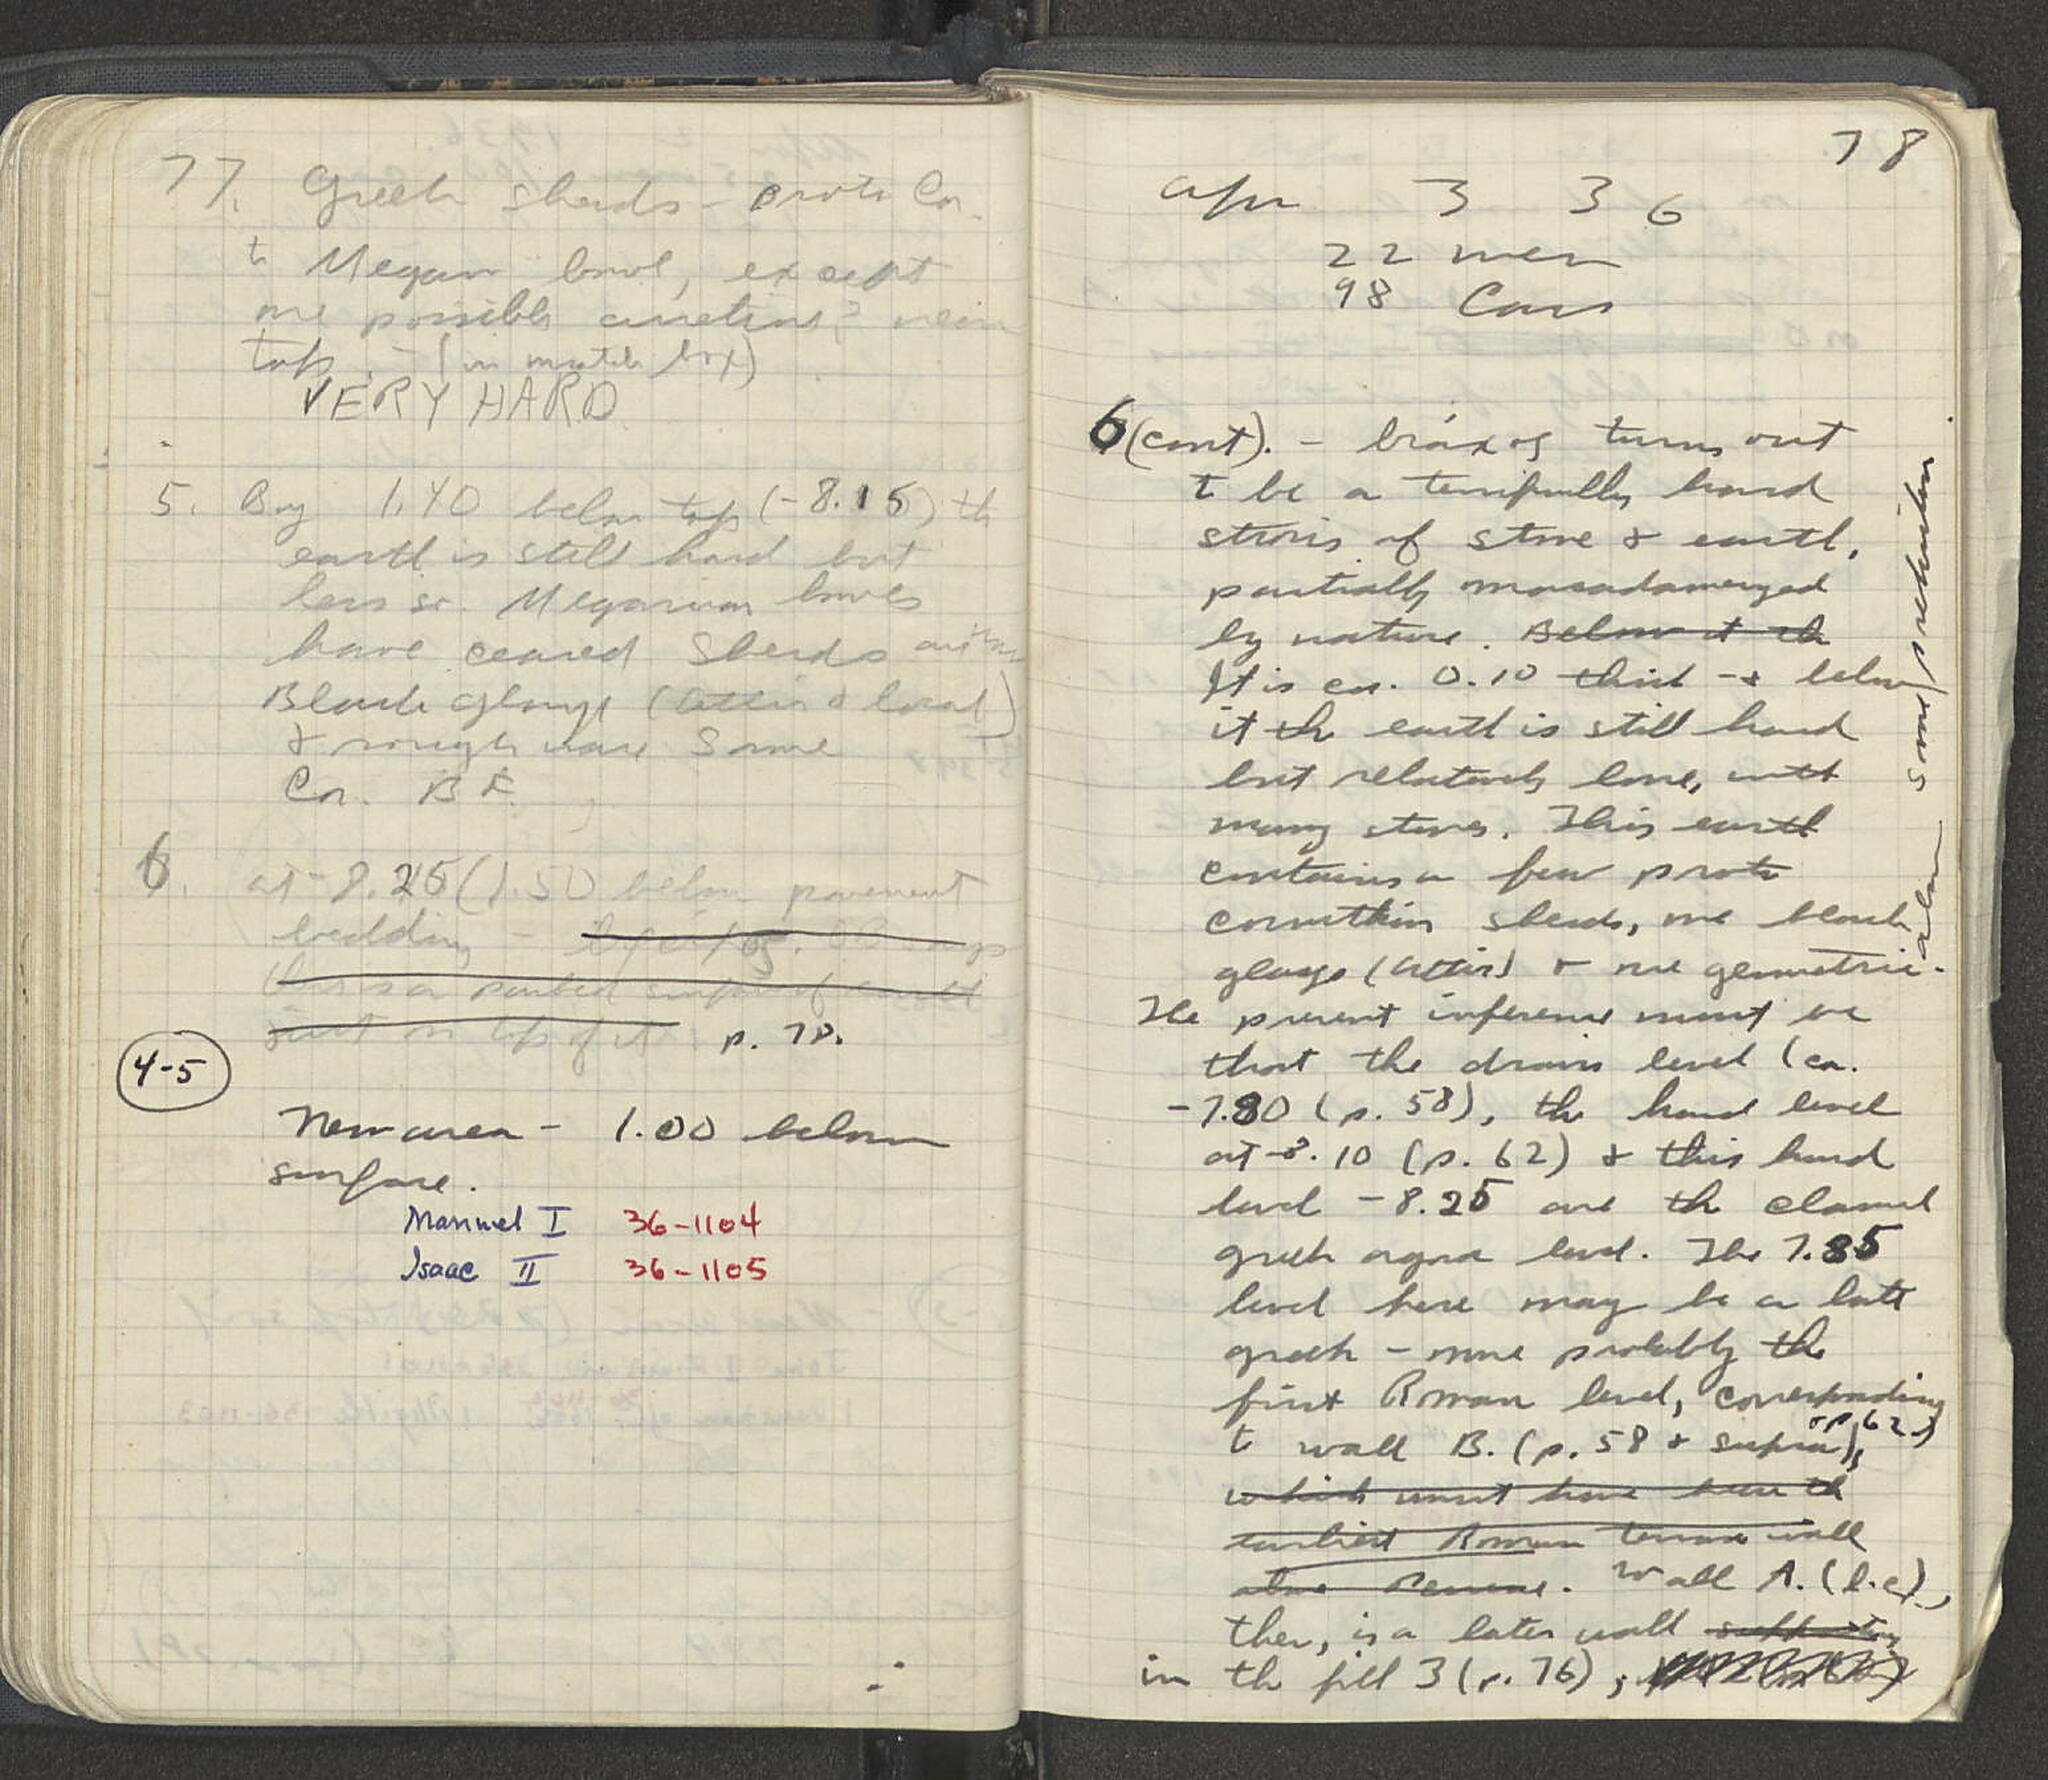 77. Greek sherds - proto Cor.
to Megarian bowl, except
one possible near
top. - (in match box)
VERY HARD
5. By 1.40 below top (-8.15) the
earth is still hard but
less so. Megarian bowls
have ceased Sherds are
Black glaze (Attic & local)
& rough ware Some
Cor. BF.
6. at -8.25 (1.50 below pavement
bedding -
this is a surface of earth
just on top of it p. 78.
4-5
New area - 1.00 below
surface.
Manuel I 36-1104
Isaac II 36-1105
78
Apr 3 36
22 men
98 Cars
6 (cont). - βράχος turns out
to be a terrifically hard
stosis of stone & earth,
partially macadamerged
by nature. Below it the
It is ca. 0.10 thick - & below
it the earth is still hard
but relatively loose, with
many stones. This earth
contains a few proto
corinthian sherds, one black
glaze (Attic) & one geometric.
also some prehistoric
The present inference must be
that the drains level (ca.
-7.80 (p. 58), the hard level
at -8.10 (p. 62) & this hard
level -8.25 are the classical
greek agora level. The 7.85
level here may be a late
greek - more probably the
first Roman level, corresponding
to wall B. (p. 58 & supra),
& p. 62)
which must have been the
earliest Roman terrace wall
Wall A. (l.c.),
then, is a later wall supporting
in the fill 3 (p. 76);